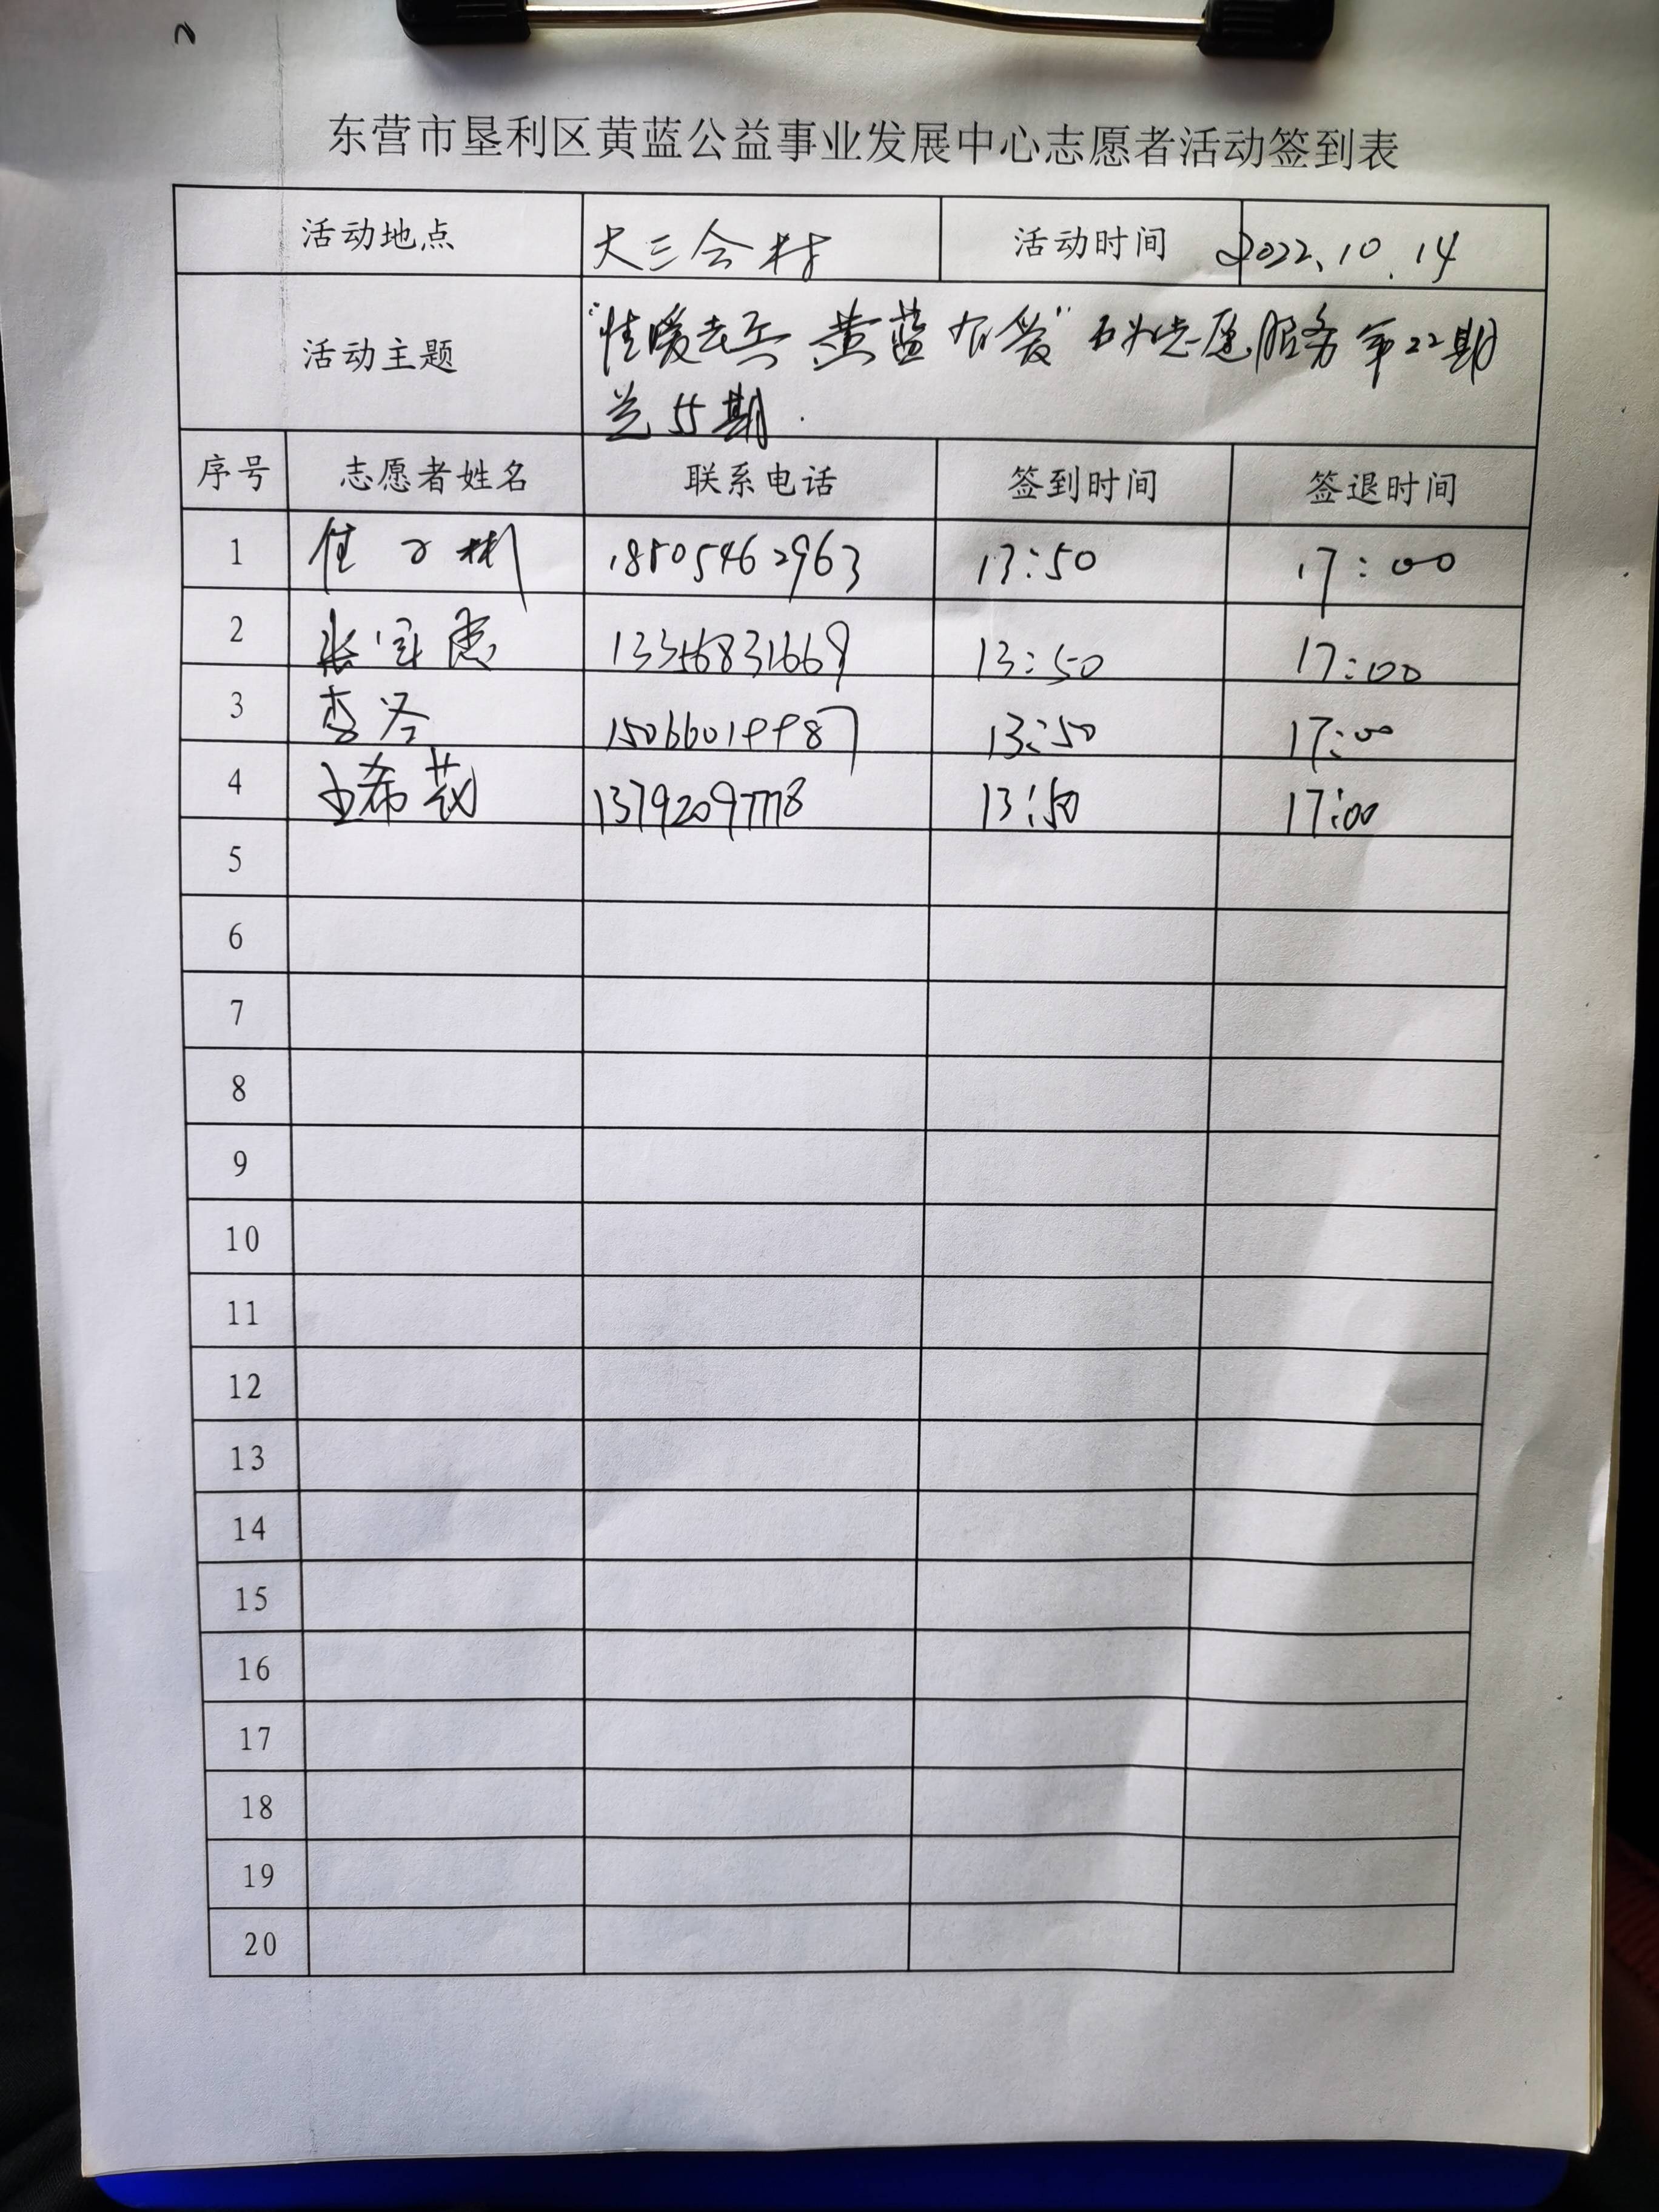 东营市垦利区黄蓝公益事业发展中心志愿者活动签到表
活动地点 大三合村 活动时间 2022.10.14
活动主题 "情暖老兵 黄蓝有爱" 志愿服务 第22期
总55期.
序号 志愿者姓名 联系电话 签到时间 签退时间
1 18805462963 13:50 17:00
2 13:50 17:00
3 李冬 13:50 17:00
4 王希 13792097778 13:50 17:00
5
6
7
8
9
10
11
12
13
14
15
16
17
18
19
20